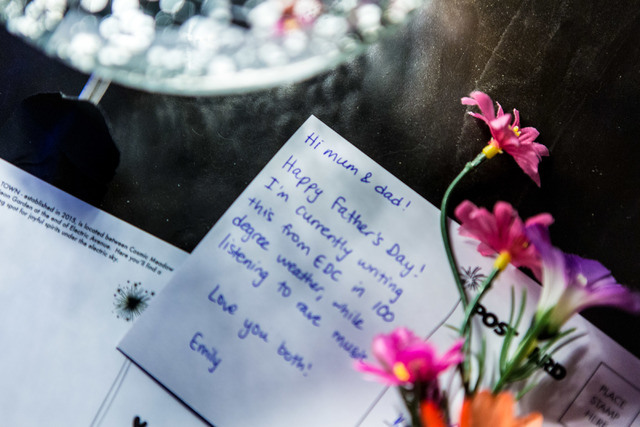 Hi mum & dad!
Happy Father's Day!
I'm currently writing
this from EDC in 100
degree weather, while
listening to rave music
Love you both!
Emily
POST
RD
PLACE
STAMP
HERE
TOWN - established in 2015, is located between Cosmic Meadow
Garden at the end of Electric Avenue. Here you'll find a
spot for joyful spirits under the electric sky.